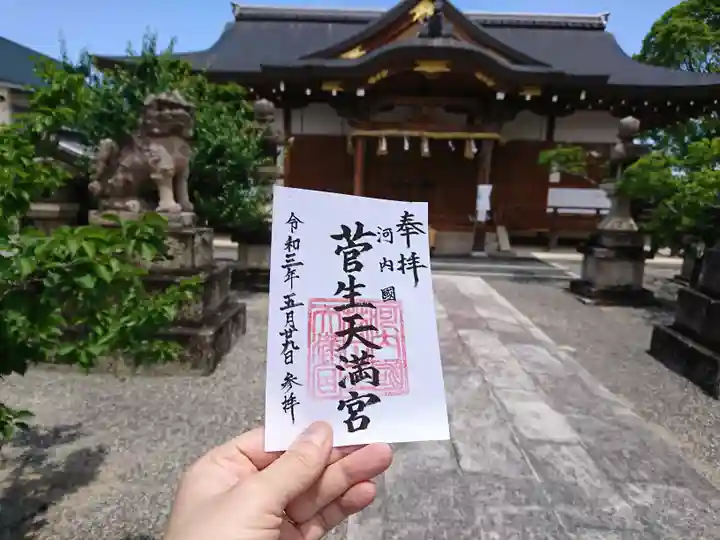 奉拝
河内國
菅生天満宮
令和三年五月廿九日 参拝